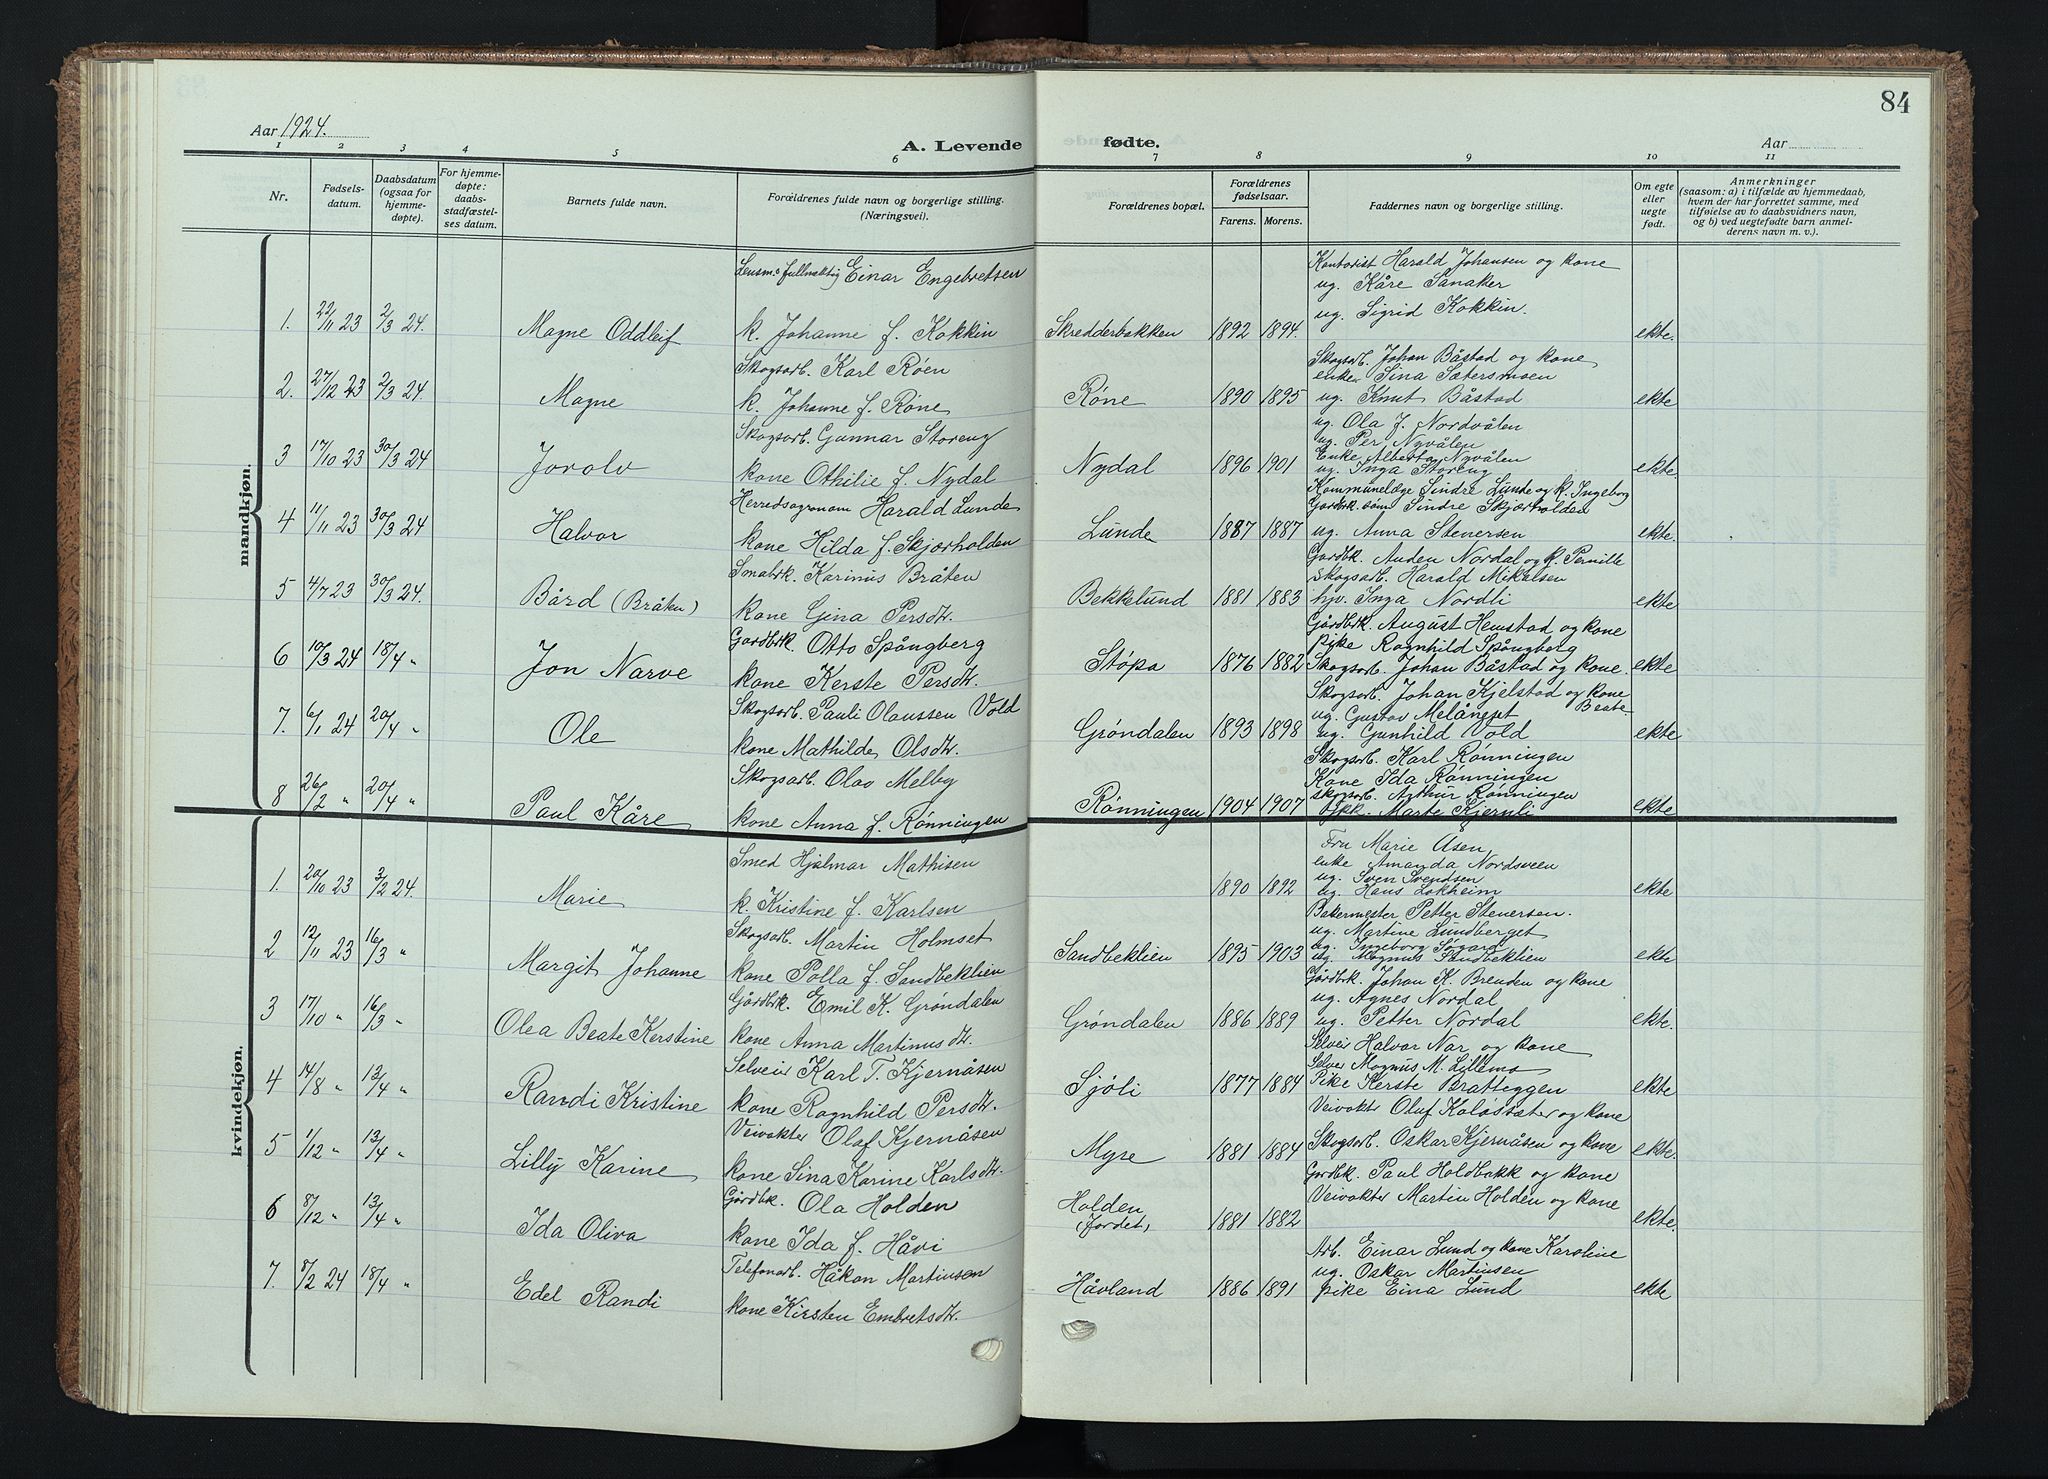 84
Aar 1924.
A. Levende fødte.
Aar
1 2 3 4 5 6 7 8 9 10 11
Nr.
Fødsels-
datum.
Daabsdatum
(ogsaa for
hjemme-
døpte).
For hjemme-
døpte:
daabs-
stadfæstel-
ses datum.
Barnets fulde navn.
Forældrenes fulde navn og borgerlige stilling.
(Næringsvei).
Forældrenes bopæl.
Forældrenes
fødselsaar.
Farens. Morens.
Faddernes navn og borgerlige stilling.
Om egte
eller
uegte
født.
Anmerkninger
(saasom: a) i tilfælde av hjemmedaab,
hvem der har forrettet samme, med
tilføielse av to daabsvidners navn,
og b) ved uegtefødte barn anmel-
derens navn m. v.).
mandkjøn.
Lensm. fullmektig Einar Engebretsen
Kontorist Harald Johansen og kone
ug. Kåre Sanaker
ug. Sigrid Kokkin.
1. 22/11 23 2/3 24. Magne Oddleif k. Johanne f. Kokkin Skredderbakken 1892 1894. ekte.
Skogsarb. Karl Røen
Skogsarb. Johan Båstad og kone
enke Sina Sætersmoen
2. 27/12 23 2/3 24. Magne k. Johanne f. Røne Røne 1890 1895 ug. Knut Båstad ekte
Skogsarb. Gunnar Storeng
ug. Ola J. Nordvålen
ug. Per Nyvålen
Enke Alberta Nyvålen
3 17/10 23 30/3 24 Jorolv kone Othilie f. Nydal Nydal 1896 1901 ug. Inga Storeng ekte.
Herredsagronom Harald Lunde
Kommunelæge Sindre Lunde og k. Ingeborg
Gardbr. sønn Sindre Skjærholden
4 11/11 23 30/3 24 Halvor kone Hilda f. Skjærholden Lunde 1887 1887 ug. Anna Stenersen ekte.
Småbrk. Karinus Bråten
Gardbk. Anden Nordal og k. Pernille
Skogsarb. Harald Mikalsen
5 4/7 23 30/3 24. Bård (Bråten) kone Gina Persdtr. Bekkelund 1881 1883 hjv. Inga Nordli ekte
Gardbrk. Otto Spångberg
Gårdbrk. August Hemstad og kone
pike Ragnhild Spångberg
6 10/3 24 18/4 " Jon Narve kone Kerste Persdtr. Støpa 1876 1882 Skogsarb. Johan Båstad og kone. ekte
Skogsarb. Pauli Olaussen Vold
Skogsarb. Johan Kjelstad og kone Beate.
ug. Gustav Melåneset
7. 6/1 24 20/4 " Ole kone Mathilde Olsdtr. Grøndalen 1893 1898 ug. Gunhild Vold ekte
Skogsarb. Olav Melby
Skogsarb. Karl Rønningen
Kone Ida Rønningen
skogsarb. Arthur Rønningen
8 26/2 " 20/4 " Paul Kåre kone Anna f. Rønningen Rønningen 1904 1907 Marte Kjernli ekte
kvindekjøn.
Smed Hjalmar Mathisen
Fru Marie Åsen
enke Amanda Nordsveen
ug. Sven Svendsen
1. 20/10 23 3/2 24. Marie k. Kristine f. Karlsen 1890 1892 ug. Hans Løkheim ekte
Skogsarb. Martin Holmset
Bakermester Petter Stenersen.
ug. Martine Lundberget
ug. Ingeborg Søgard
2 12/11 23 16/3 " Margit Johanne kone Polla f. Sandbeklien Sandbeklien 1895 1903 ug. Magnus Sandbeklien ekte
Gårdbrk. Emil K. Grøndalen
Gårdbk. Johan K. Brenden og kone
ug. Agnes Nordal
3 17/10 " 16/3 " Olea Beate Kerstine kone Anna Martinusdtr. Grøndalen 1886 1889 ug. Petter Nordal ekte.
Selveir Karl T. Kjernåsen
Selveir Halvor Nar og kone
Selveir Magnus M. Lillemo
4 14/8 " 13/4 " Randi Kristine kone Ragnhild Persdtr. Sjøli 1877 1884 Pike Kerste Bratteggen ekte
Veivokter Olaf Kjernåsen
Veivokter Oluf Koløsæter og kone
5 1/12 " 13/4 " Lilly Karine kone Sina Karine Karlsdtr. Myre 1881 1884 Skogsarb. Oskar Kjernåsen og kone ekte.
Gårdbk. Ola Holden
Gardbk. Paul Holdbakk og kone
Veivokter Martin Holden og kone
6 8/12 " 13/4 " Ida Oliva kone Ida f. Håvi Holden (Jordet) 1881 1882 ekte.
Telefonarb. Håkon Martinsen
Arb. Einar Lund og kone Karoline
ug. Oskar Martinsen
7. 8/2 24 18/4 " Edel Randi kone Kirsten Embretsdtr. Håvland 1886 1891 pike Eina Lund ekte